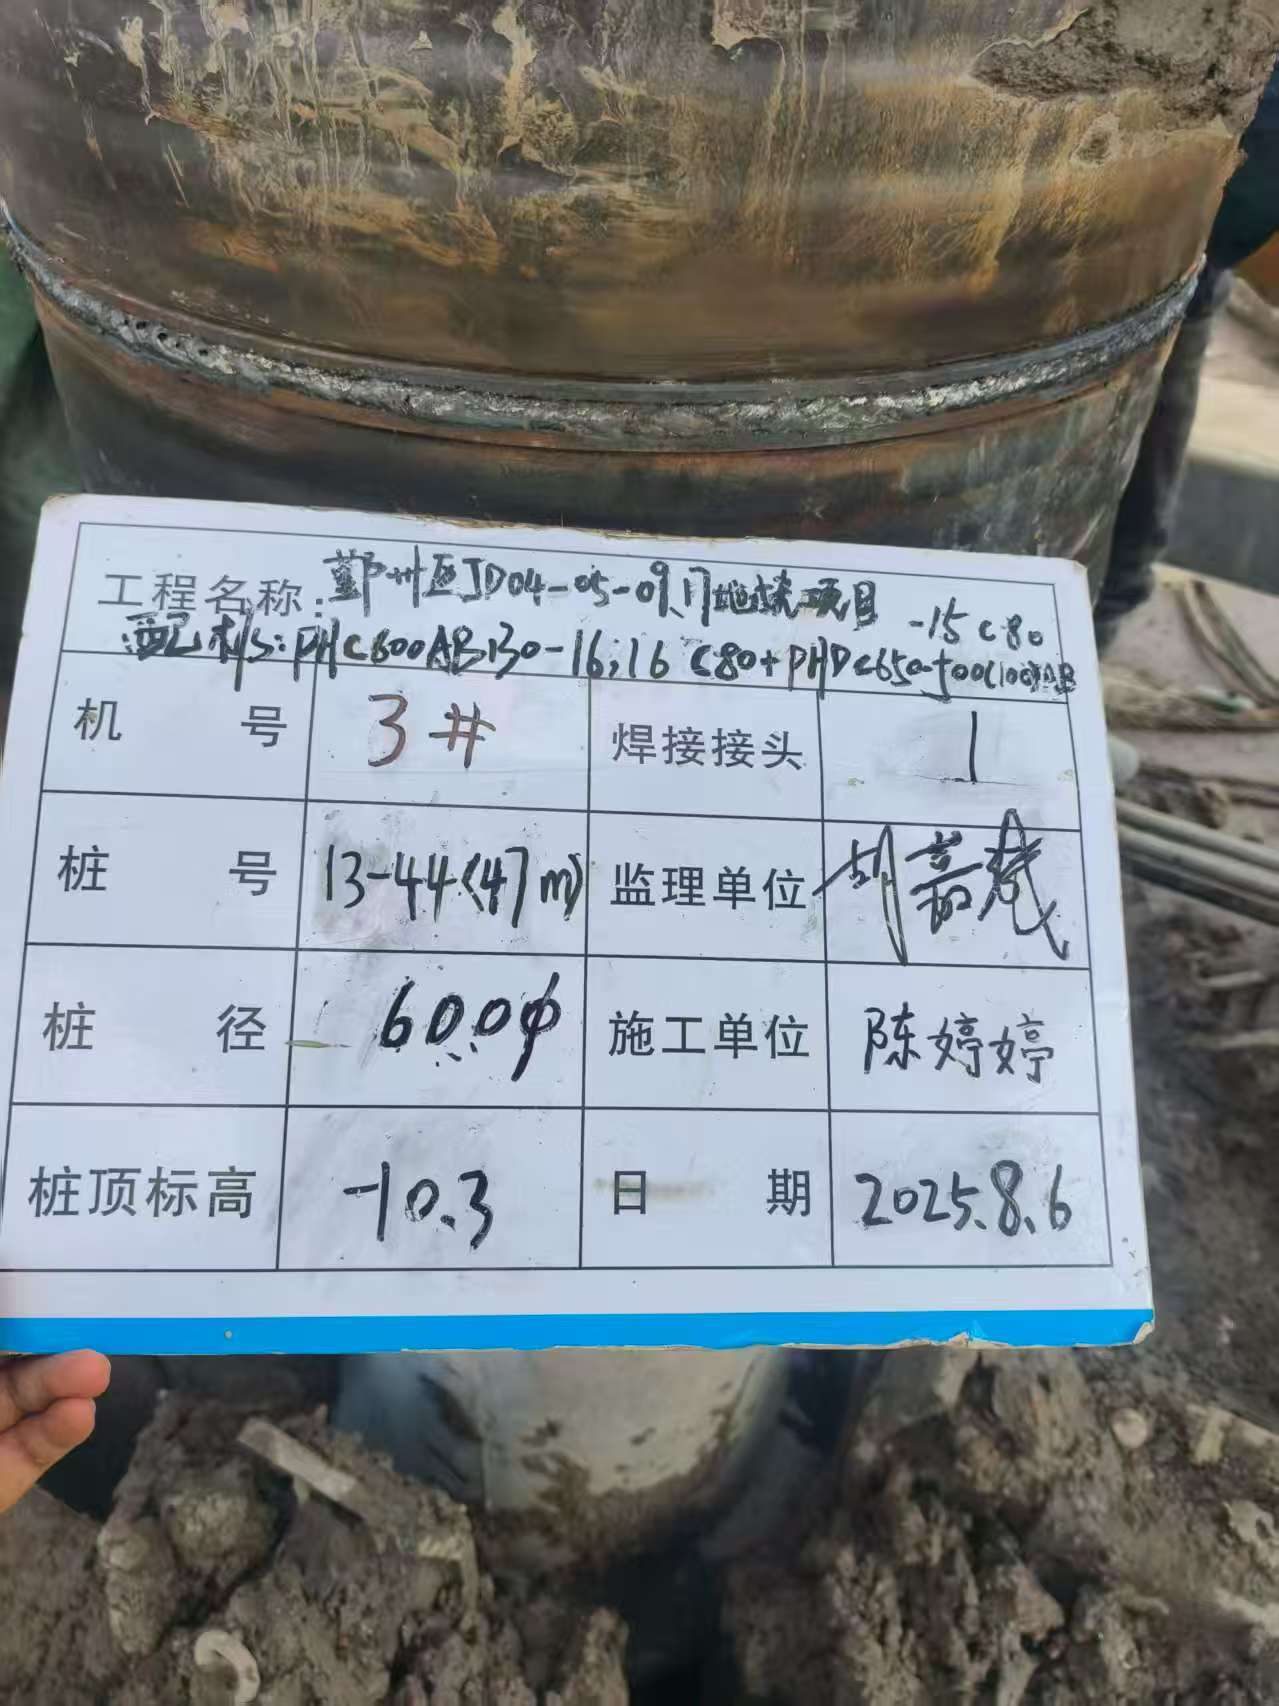 工程名称: 鄞州区JD04-05-09、17地块项目 -15 C80
配桩: PHC600AB130-16;16 C80+PHDC650-500(100)AB
机号 3# 焊接接头 1
桩号 13-44(47m) 监理单位
桩径 600φ 施工单位 陈婷婷
桩顶标高 -10.3 日期 2025.8.6